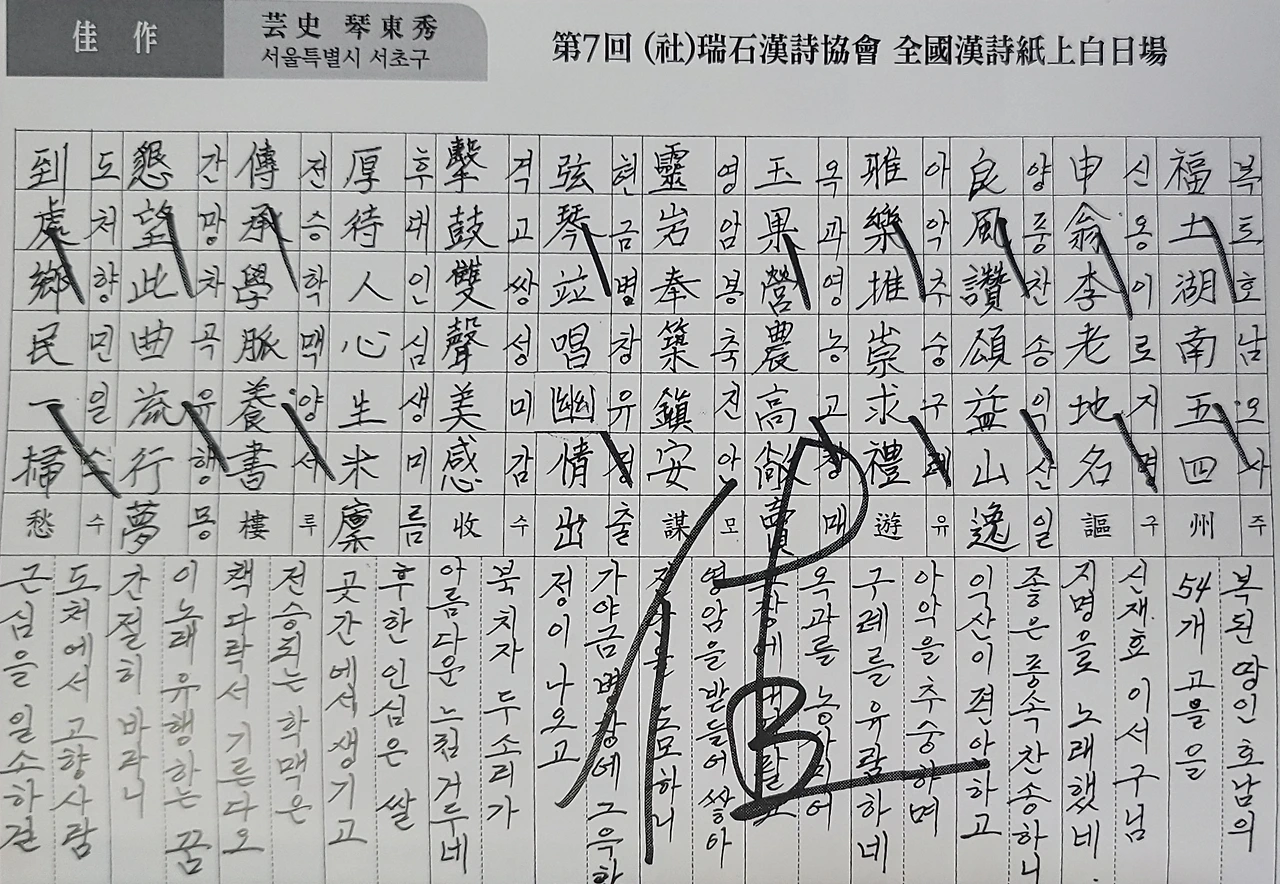 佳作
芸史 琴東秀
서울특별시 서초구
第7回 (社)瑞石漢詩協會 全國漢詩紙上白日場
복토호남오사주
福土湖南五四州
신옹이로지명구
申翁李老地名謳
양풍찬송익산일
良風讚頌益山逸
아악추숭구례유
雅樂推崇求禮遊
옥과영농고창매
玉果營農高敞賣
영암봉축진안모
靈岩奉築鎭安謀
현금병창유정출
弦琴竝唱幽情出
격고쌍성미감수
擊鼓雙聲美感收
후대인심생미름
厚待人心生米廩
전승학맥양서루
傳承學脈養書樓
간망차곡유행몽
懇望此曲流行夢
도처향민일소수
到處鄕民一掃愁
복된 땅인 호남의
54개 고을을
신재효 이서구님
지명을 노래했네.
좋은 풍속 찬송하니
익산이 편안하고
아악을 추숭하며
구례를 유람하네
옥과를
영암을 받들어 쌓아
도모하니
가야금 병창에 그윽한
정이 나오고
북치자 두 소리가
아름다운 느낌 거두네
후한 인심은 쌀
곳간에서 생기고
전승되는 학맥은
책다락서 기른다오
이 노래 유행하는 꿈
간절히 바라니
도처에서 고향사람
근심을 일소하길